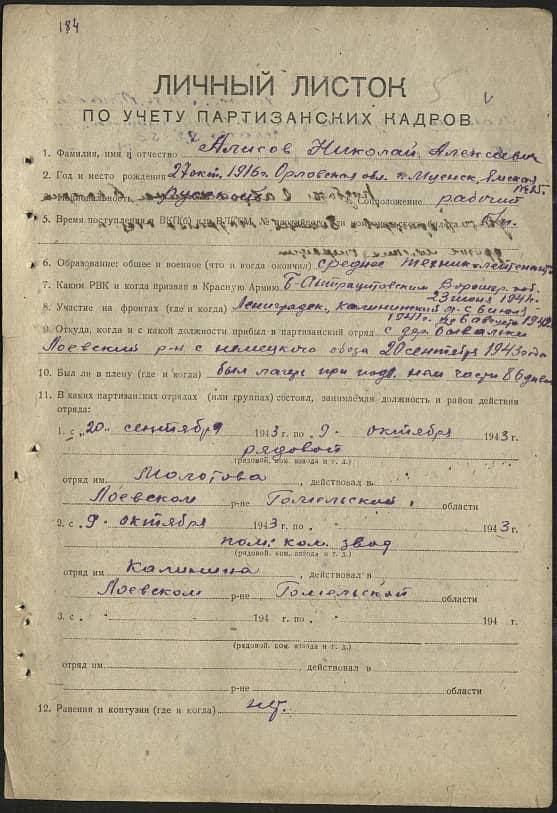 184
ЛИЧНЫЙ ЛИСТОК
ПО УЧЕТУ ПАРТИЗАНСКИХ КАДРОВ
1. Фамилия, имя и отчество Алисов Николай Алексеевич
2. Год и место рождения 27 окт. 1916 г. Орловская обл.
Русский Соцположение рабочий
5. Время поступления в ВКП(б) или ВЛКСМ
6. Образование: общее и военное (что и когда окончил) среднее техник-лейтенант
7. Каким РВК и когда призван в Красную Армию Б-Антрацитовским Ворошил. обл.
23 июня 1941 г.
8. Участие на фронтах (где и когда) Ленинградск., Калининский с 6 июля
1941 г. до 6 августа 1942
9. Откуда, когда и с какой должности прибыл в партизанский отряд с дер. Бывальки
Лоевский р-н с немецкого обоза 20 сентября 1943 года
10. Был ли в плену (где и когда) был лагерь при части 86 дней
11. В каких партизанских отрядах (или группах) состоял, занимаемая должность и район действия
отряда:
1. с „20“ сентября 1943 г. по „9“ октября 1943 г.
рядовой
(рядовой, ком. взвода и т. д.)
отряд им Молотова, действовал в
Лоевском р-не Гомельской области
2. с „9“ октября 1943 г. по „ “ 1943 г.
пом. ком. звод
(рядовой, ком. взвода и т. д.)
отряд им Калинина, действовал в
Лоевском р-не Гомельской области
3. с „ “ 194 г. по „ “ 194 г.
(рядовой, ком. взвода и т. д.)
отряд им. , действовал в
р-не области
12. Ранения и контузии (где и когда) нет.